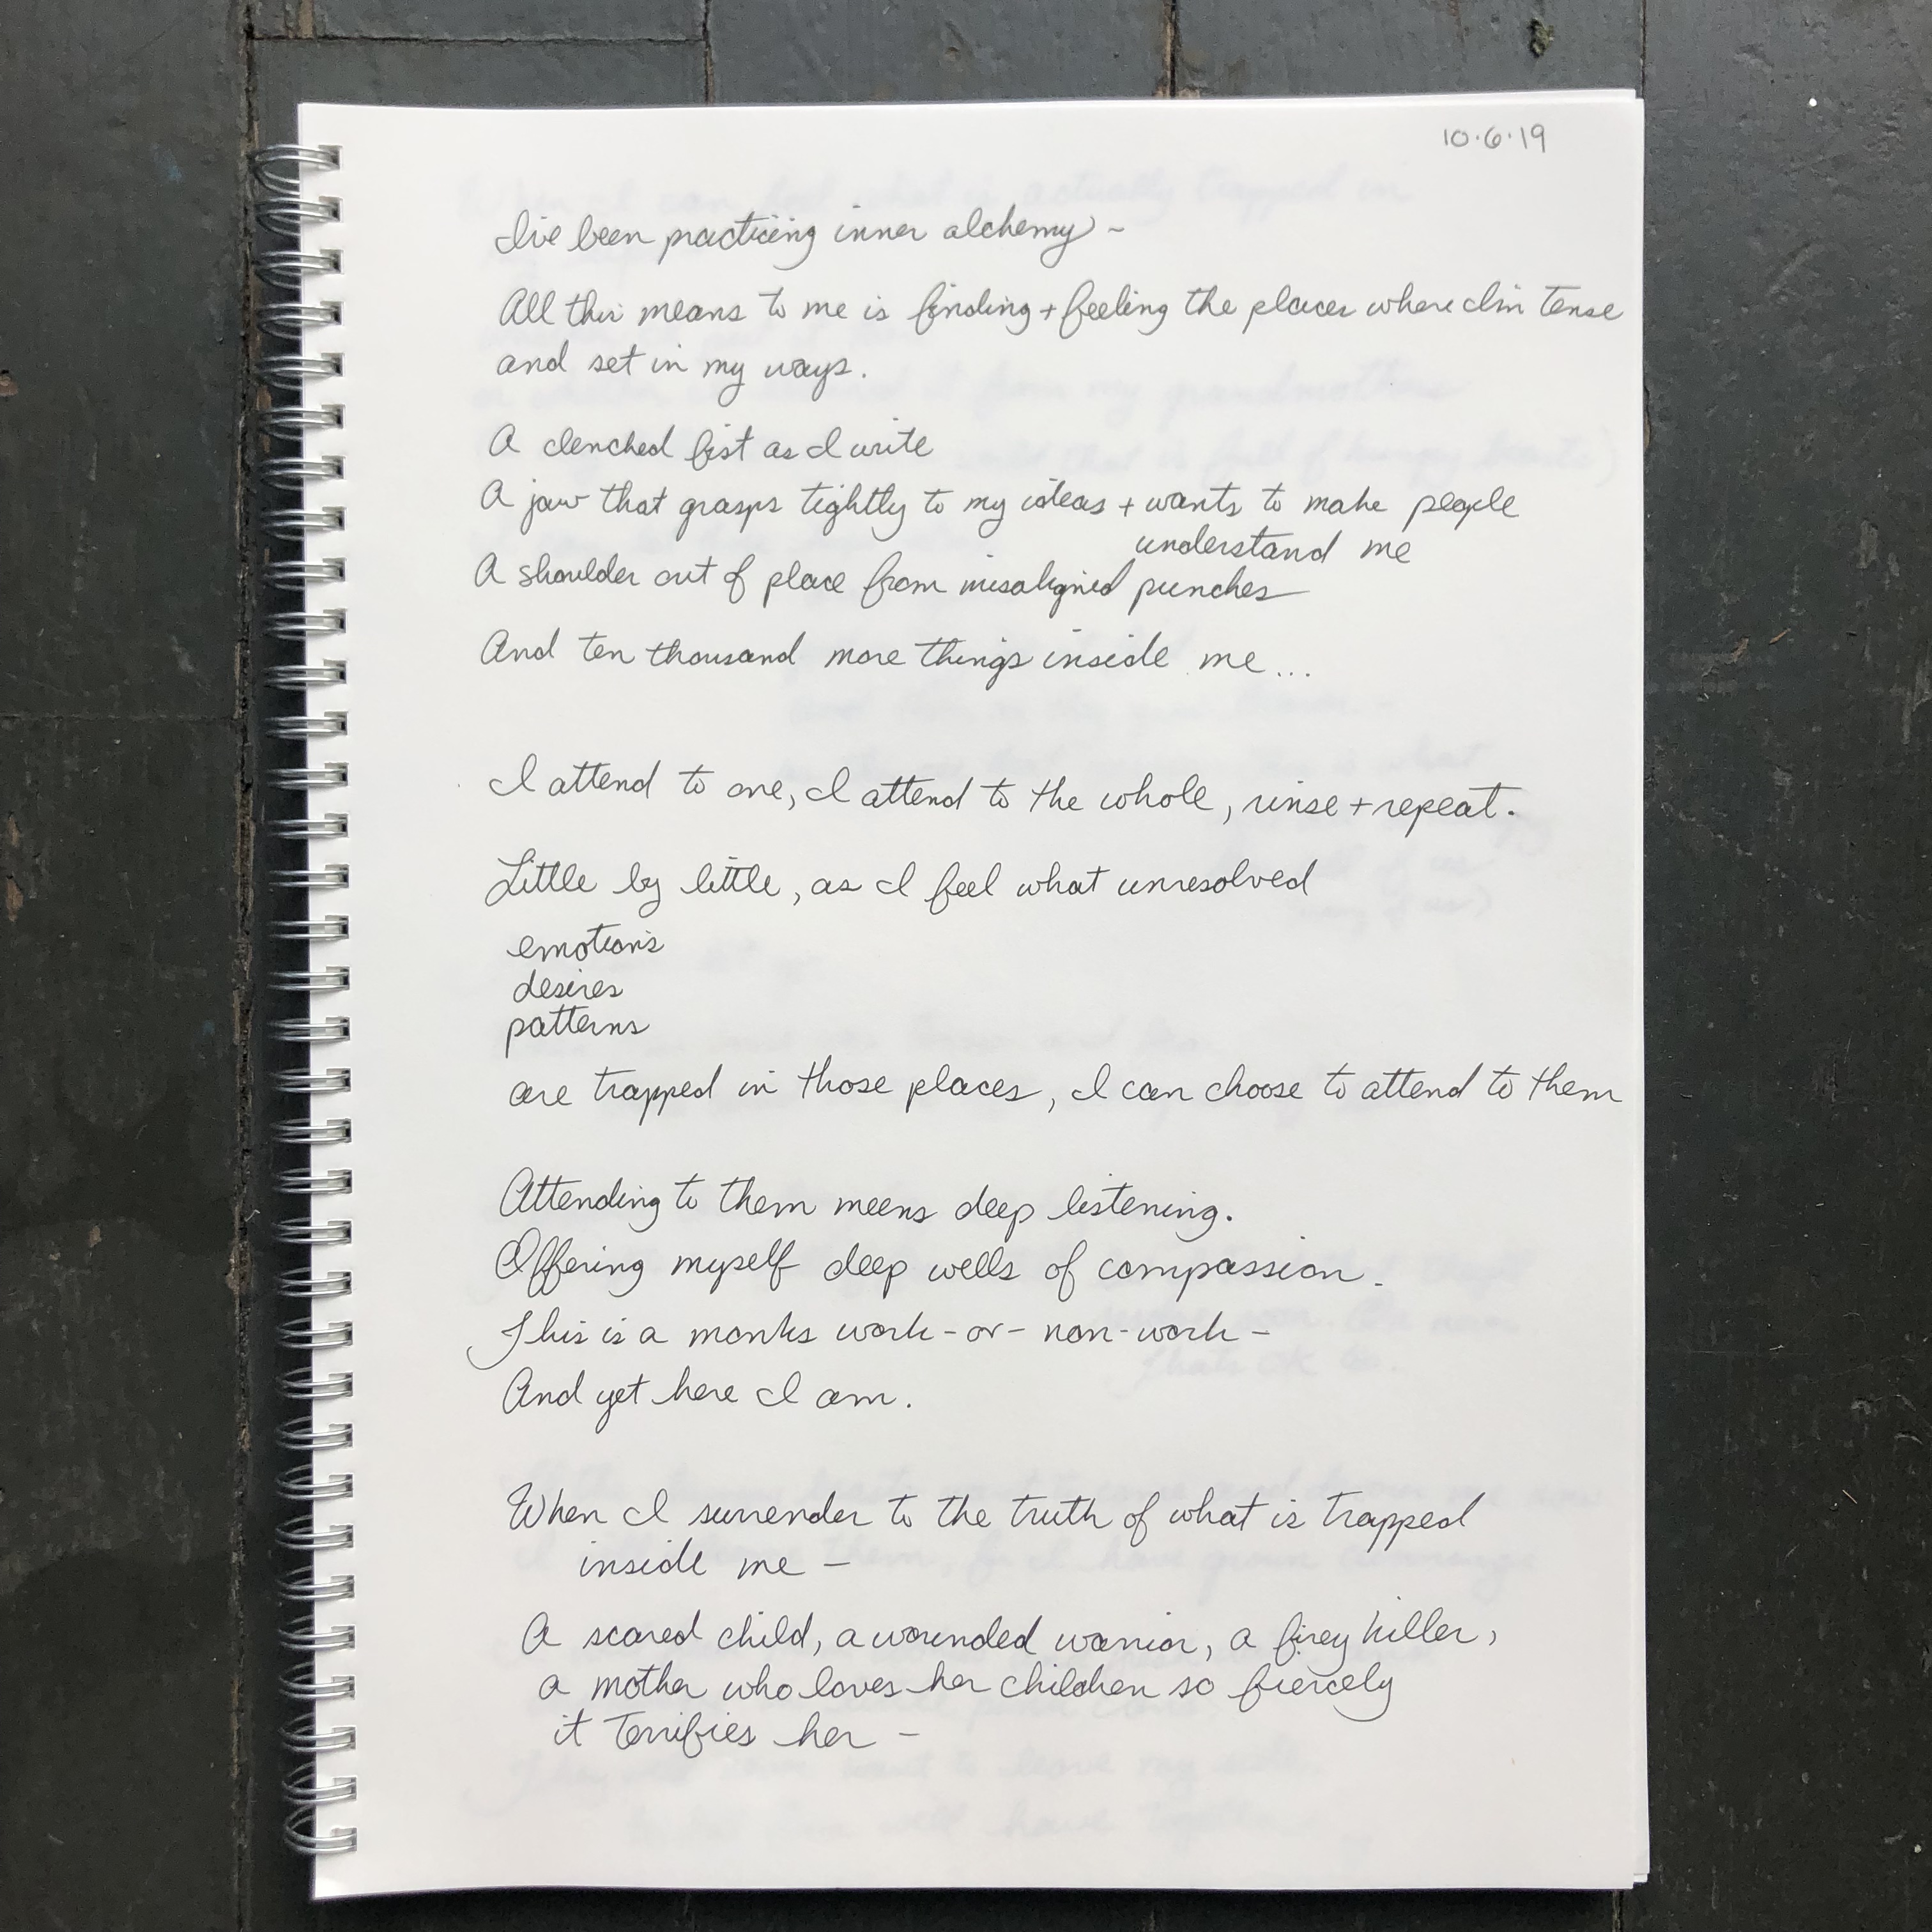 10.6.19
I've been practicing inner alchemy -
All this means to me is finding + feeling the places where I'm tense
and set in my ways.
A clenched fist as I write
A jaw that grasps tightly to my ideas + wants to make people
understand me
A shoulder out of place from misaligned punches
And ten thousand more things inside me...
I attend to one, I attend to the whole, rinse + repeat.
Little by little, as I feel what unresolved
emotions
desires
patterns
are trapped in those places, I can choose to attend to them
Attending to them means deep listening.
Offering myself deep wells of compassion.
This is a monks work - or - non-work -
And yet here I am.
When I surrender to the truth of what is trapped
inside me -
A scared child, a wounded warrior, a firey killer,
a mother who loves her children so fiercely
it terrifies her -